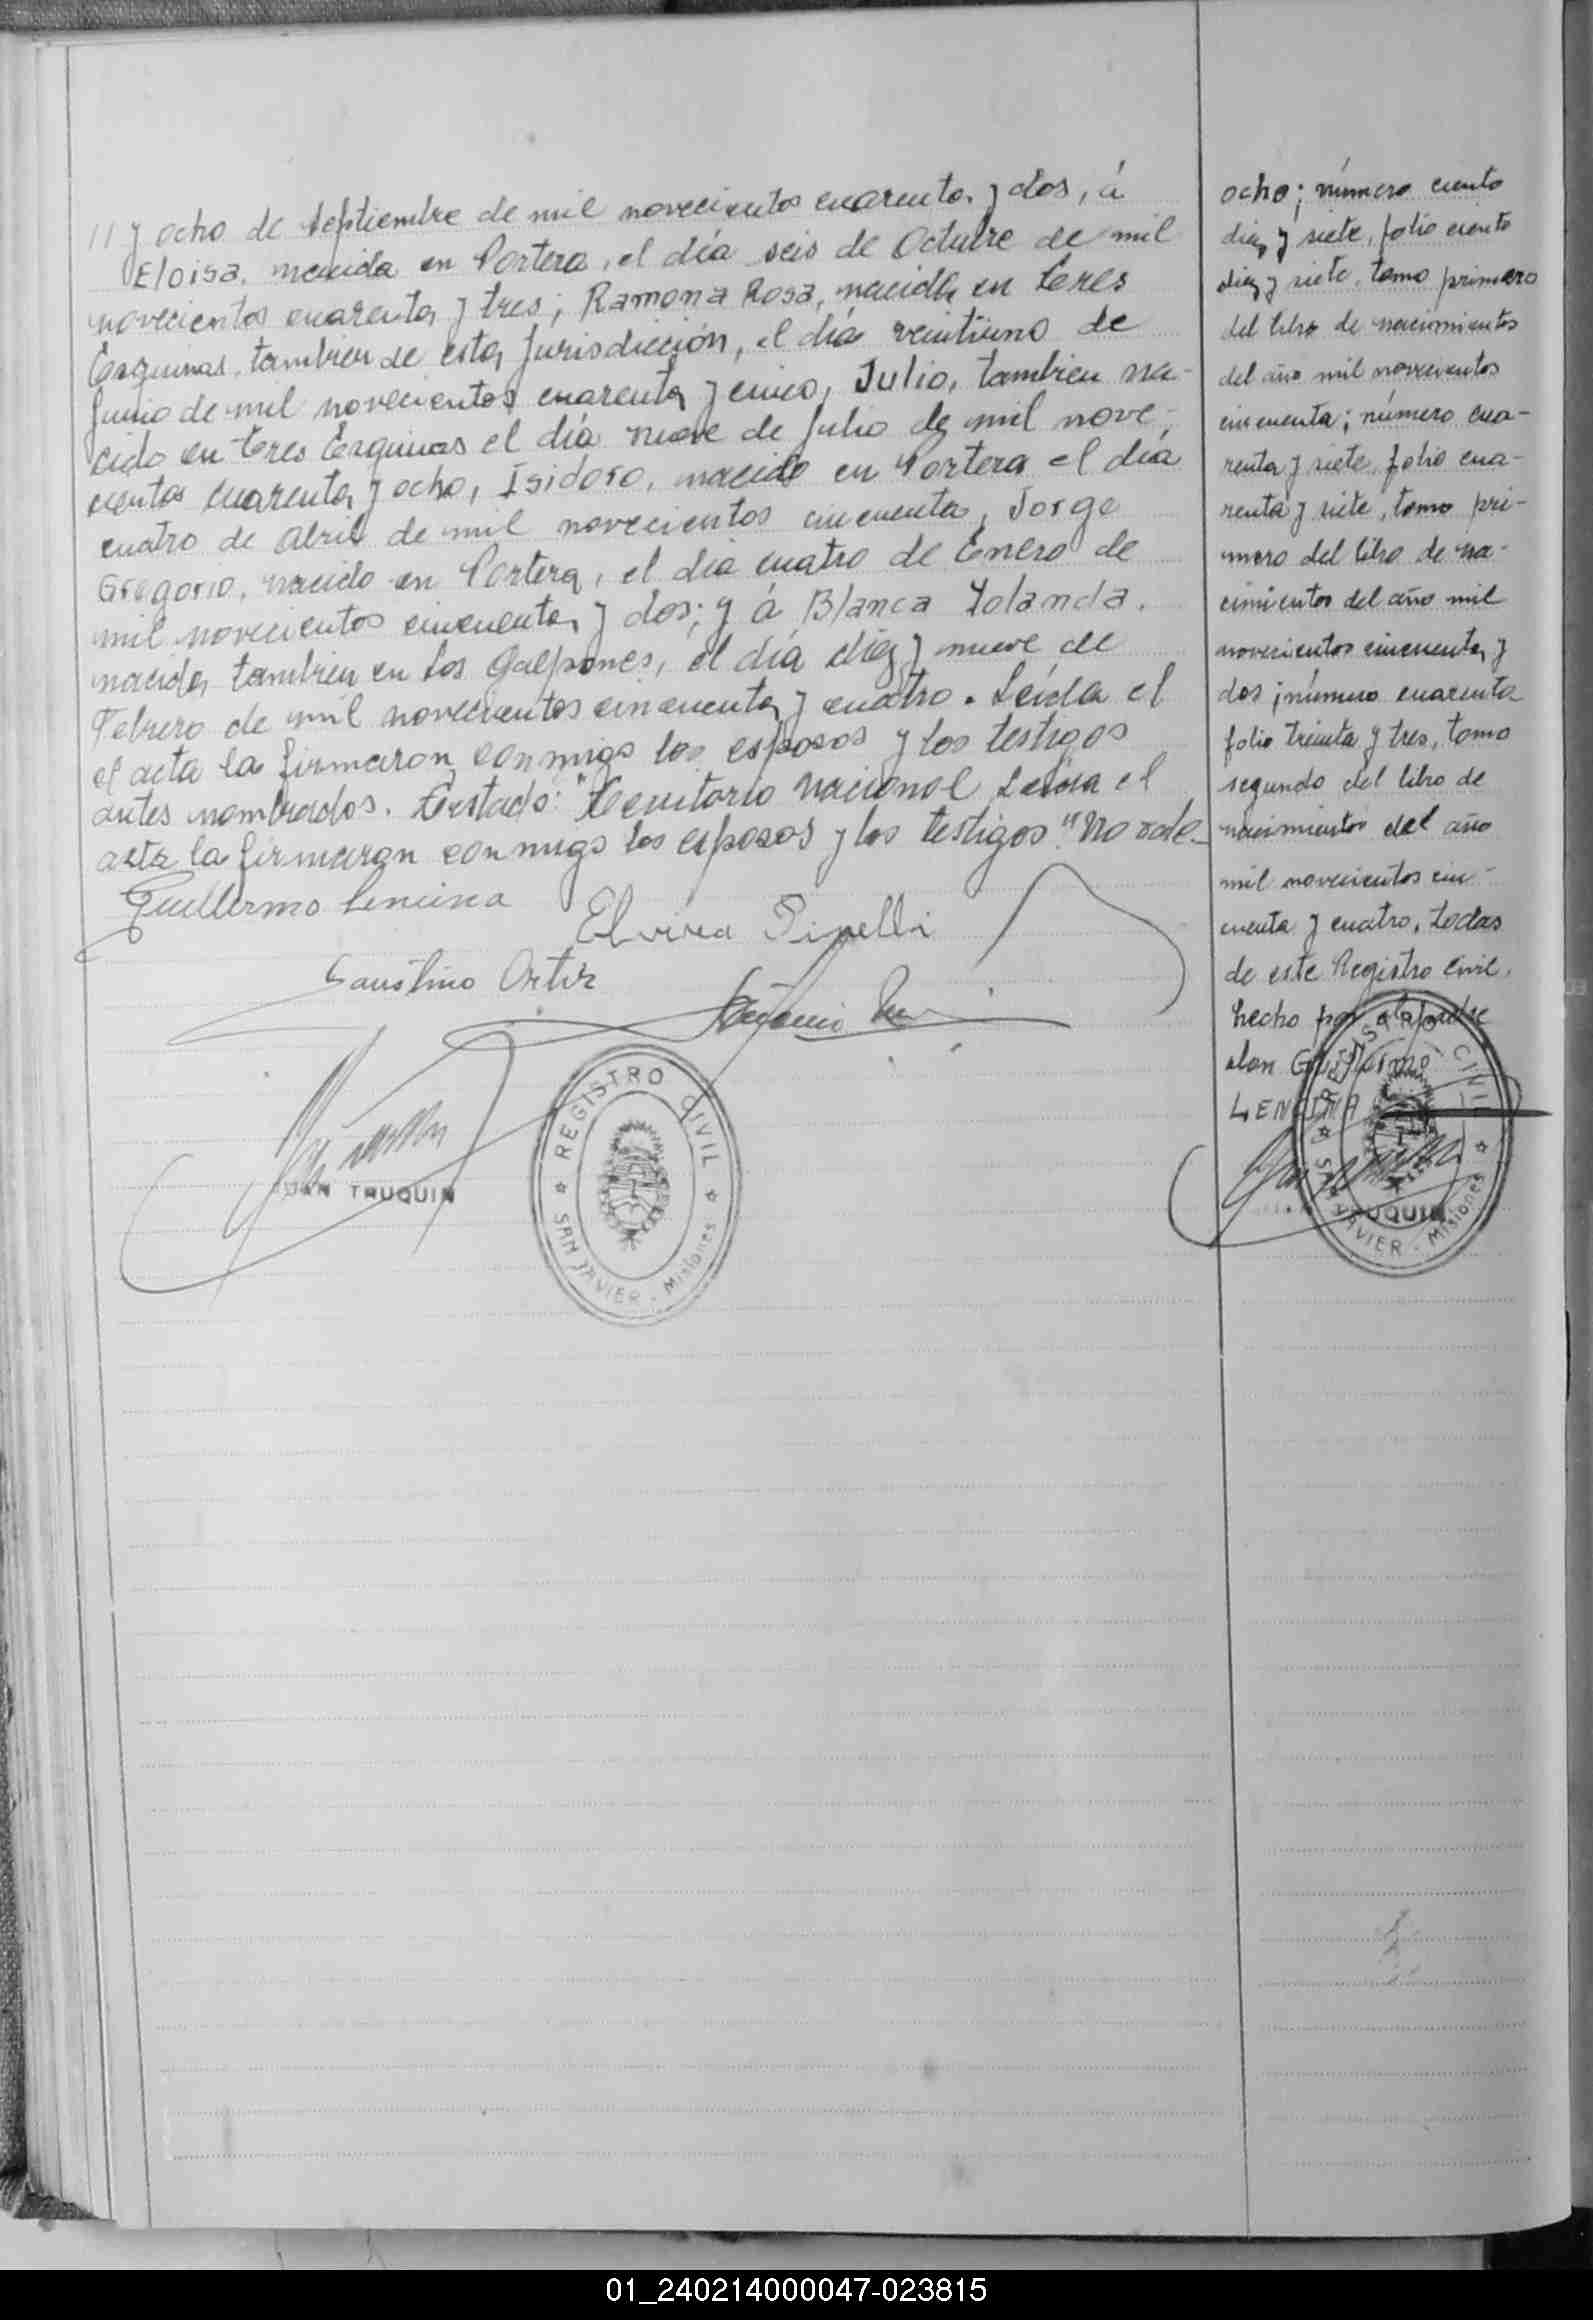 // y ocho de Septiembre de mil novecientos cuarenta y dos, á
Eloisa, nacida en Portera, el día seis de Octubre de mil
novecientos cuarenta y tres; Ramona Rosa, nacida en Tres
Esquinas, tambien de esta Jurisdicción, el día veintiuno de
Junio de mil novecientos cuarenta y cinco, Julio, tambien na-
cido en Tres Esquinas el día nueve de Julio de mil nove-
cientos cuarenta y ocho, Isidoro, nacido en Portera el día
cuatro de Abril de mil novecientos cincuenta, Jorge
Gregorio, nacido en Portera, el día cuatro de Enero de
mil novecientos cincuenta y dos; y á Blanca Yolanda,
nacida tambien en Los Galpones, el día diez y nueve de
Febrero de mil novecientos cincuenta y cuatro. Leída el
el acta la firmaron conmigo los esposos y los testigos
antes nombrados. Testado: "Territorio Nacional Leída el
acta la firmaron conmigo los esposos y los testigos" No vale.-
Guillermo Lencina
Elvira Pinelli
Faustino Ortiz
Antonio
JUAN TRUQUIN
REGISTRO CIVIL
SAN JAVIER - Misiones
ocho; número ciento
diez y siete, folio ciento
diez y siete, tomo primero
del libro de nacimientos
del año mil novecientos
cincuenta; número cua-
renta y siete, folio cua-
renta y siete, tomo pri-
mero del libro de na-
cimientos del año mil
novecientos cincuenta y
dos; número cuarenta
folio treinta y tres, tomo
segundo del libro de
nacimientos del año
mil novecientos cin-
cuenta y cuatro, todas
de este Registro Civil,
hecho por el padre
don Guillermo
LENCINA
REGISTRO CIVIL
SAN JAVIER - Misiones
TRUQUIN
01_240214000047-023815